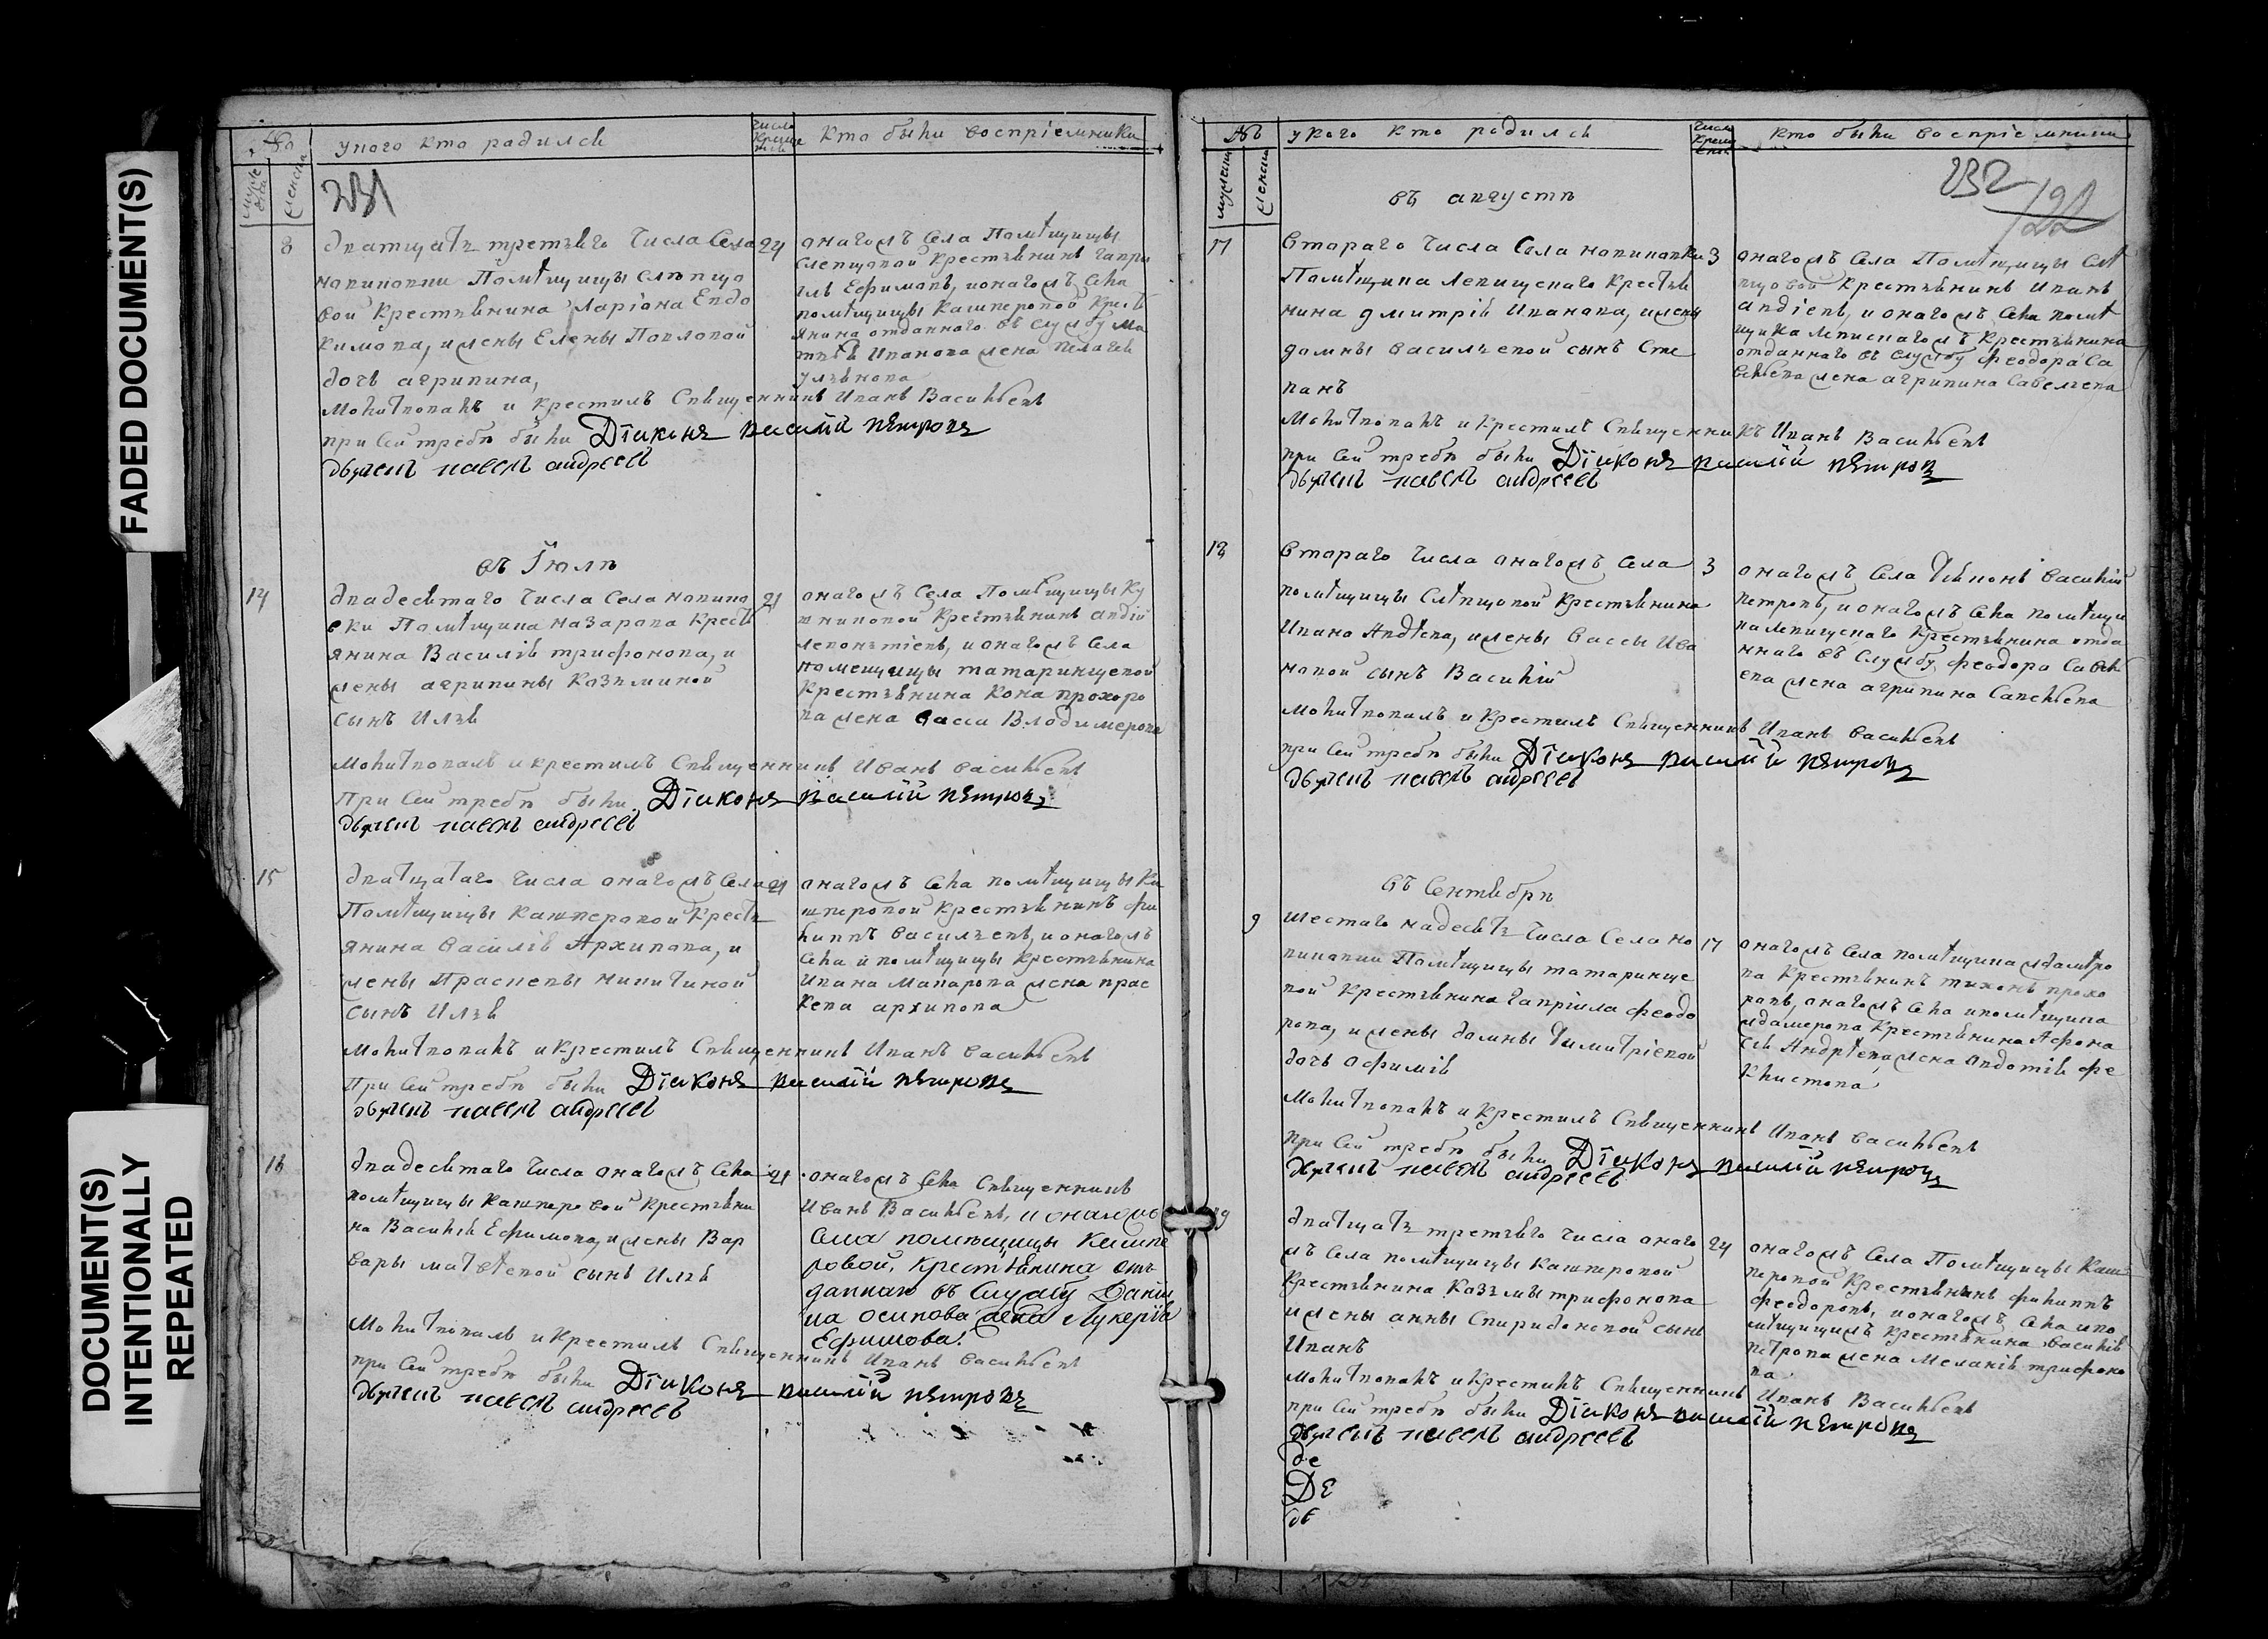 FADED DOCUMENT(S)
DOCUMENT(S)
INTENTIONALLY
REPEATED
№
у каго кто радился
числа
креще
ния
кто были воспріемники
231
8
дватцать третьяго числа села
помѣщицы слѣпцо
вой крестьянина Ларіона Евдо
кимова, и жены Елены Павловой
дочь агрипина,
24
онагожъ села Помѣщицы
слепцовой крестьянинъ гаври
илъ Ефимовъ, и онагожъ села
помѣщицы кашперовой крест
янина отданнаго въ службу ма
твѣя Иванова жена пелагея
ульянова
молитвовалъ и крестилъ священникъ Иванъ Васильевъ
при сей требѣ были Дїаконъ василій петровъ
дьячекъ павелъ андреевъ
въ Іюлѣ
14
двадесятаго числа села
Помѣщика назарова крест
янина Василія трифонова, и
жены агрипины казминой
сынъ Илья
21
онагожъ села Помѣщицы
крестьянинъ
леонтіевъ, и онагожъ села
помещицы татаринцевой
крестьянина прохоро
ва жена васса Владимерова
молитвовалъ и крестилъ священникъ Иванъ васильевъ
При сей требѣ были Дїаконъ василій петровъ
дьячекъ павелъ андреевъ
15
дватцатаго числа онагожъ села
Помѣщицы кашперовой крест
янина василія Архипова, и
жены Прасковьи никитиной
сынъ Илья
21
онагожъ села помѣщицы ка
шперовой крестьянинъ фи
липпъ васильевъ, и онагожъ
села и помѣщицы крестьянина
Ивана макарова жена прас
кева архипова
молитвовалъ и крестилъ священникъ Иванъ васильевъ
При сей требѣ были Дїаконъ василій петровъ
дьячекъ павелъ андреевъ
16
двадесятаго числа онагожъ села
помѣщицы кашперовой крестьяни
на Василія Ефимова, и жены Вар
вары матвѣевой сынъ Илья
21
онагожъ села священникъ
Иванъ Васильевъ, и онагожъ
села помѣщицы кашпе
ровой, крестьянина от
даннаго въ службу Даніи
ла осипова жена Лукерія
Ефимова.
молитвовалъ и крестилъ священникъ Иванъ васильевъ
при сей требѣ были Дїаконъ василій петровъ
дьячекъ павелъ андреевъ
№
у кого кто родился
числа
креще
ния
кто были воспріемники
232
122
въ августѣ
17
втораго числа села
Помѣщика крестья
нина дмитрія Иванова, и жены
домны васильевой сынъ Сте
панъ
3
онагожъ села Помѣщицы слѣ
пцовой крестьянинъ Иванъ
и онагожъ села помѣ
щика крестьянина
отданнаго въ службу феодора са
вельева жена агрипина савельева
молитвовалъ и крестилъ священникъ Иванъ Васильевъ
при сей требѣ были Дїаконъ василій петровъ
дьячекъ павелъ андреевъ
18
втораго числа онагожъ села
помѣщицы слѣпцовой крестьянина
Ивана и жены вассы Ива
новой сынъ Василій
3
онагожъ села Діаконъ василій
петровъ, и онагожъ села помѣщи
ка крестьянина отда
ннаго въ службу феодора савель
ева жена агрипина савельева
молитвовалъ и крестилъ священникъ Иванъ васильевъ
при сей требѣ были Дїаконъ василій петровъ
дьячекъ павелъ андреевъ
въ Сентябрѣ
9
шестаго надесять числа села
Помѣщицы татаринце
вой крестьянина гавріила феодо
рова, и жены домны димитріевой
дочь офимія
17
онагожъ села помѣщика
крестьянинъ тихонъ прохо
ровъ, онагожъ села и помѣщика
крестьянина Афона
сія Андрѣева жена авдотія
молитвовалъ и крестилъ священникъ Иванъ васильевъ
при сей требѣ были Дїаконъ василій петровъ
дьячекъ павелъ андреевъ
19
дватцать третьяго числа онаго
жъ села помѣщицы кашперовой
крестьянина казьмы трифонова
и жены анны спиридоновой сынъ
Иванъ
24
онагожъ села Помѣщицы каш
перовой крестьянинъ филиппъ
феодоровъ, и онагожъ села и по
мѣщицы крестьянина василія
петрова жена меланія трифоно
ва
молитвовалъ и крестилъ священникъ Иванъ Васильевъ
при сей требѣ были Дїаконъ василій петровъ
дьячекъ павелъ андреевъ
де
ДЕ